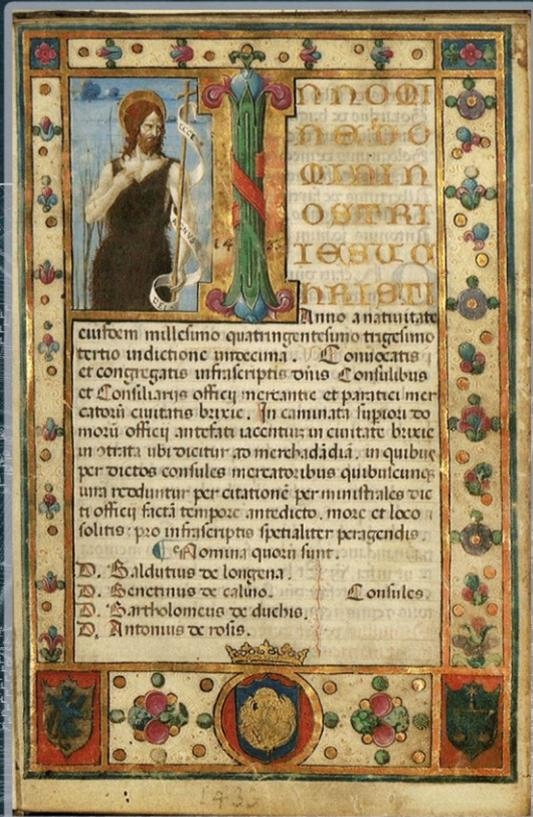 IN NOMI
NE DO
MINI N
OSTRI
IESU C
HRISTI
Anno a nativitate
eiusdem millesimo quatringentesimo trigesimo
tertio indictione undecima. Convocatis
et congregatis infrascriptis dn̄is Consulibus
et Consiliariis officii mercantie et paratici mer
catorū civitatis brixie. In caminata sup̄iori do
morū officii antefati iacentiū in civitate brixie
in strata ubi dicitur ad merchādādiā, in quibus
per dictos consules mercatoribus quibuscunq
iura redduntur per citationē per ministrales dic
ti officii factā tempore antedicto, more et loco
solitis: pro infrascriptis spetialiter peragendis.
Nomina quorū sunt.
D. Baldutius de longena.
D. Benetinus de calino. Consules.
D. Bartholomeus de duchis.
D. Antonius de rosis.
1433